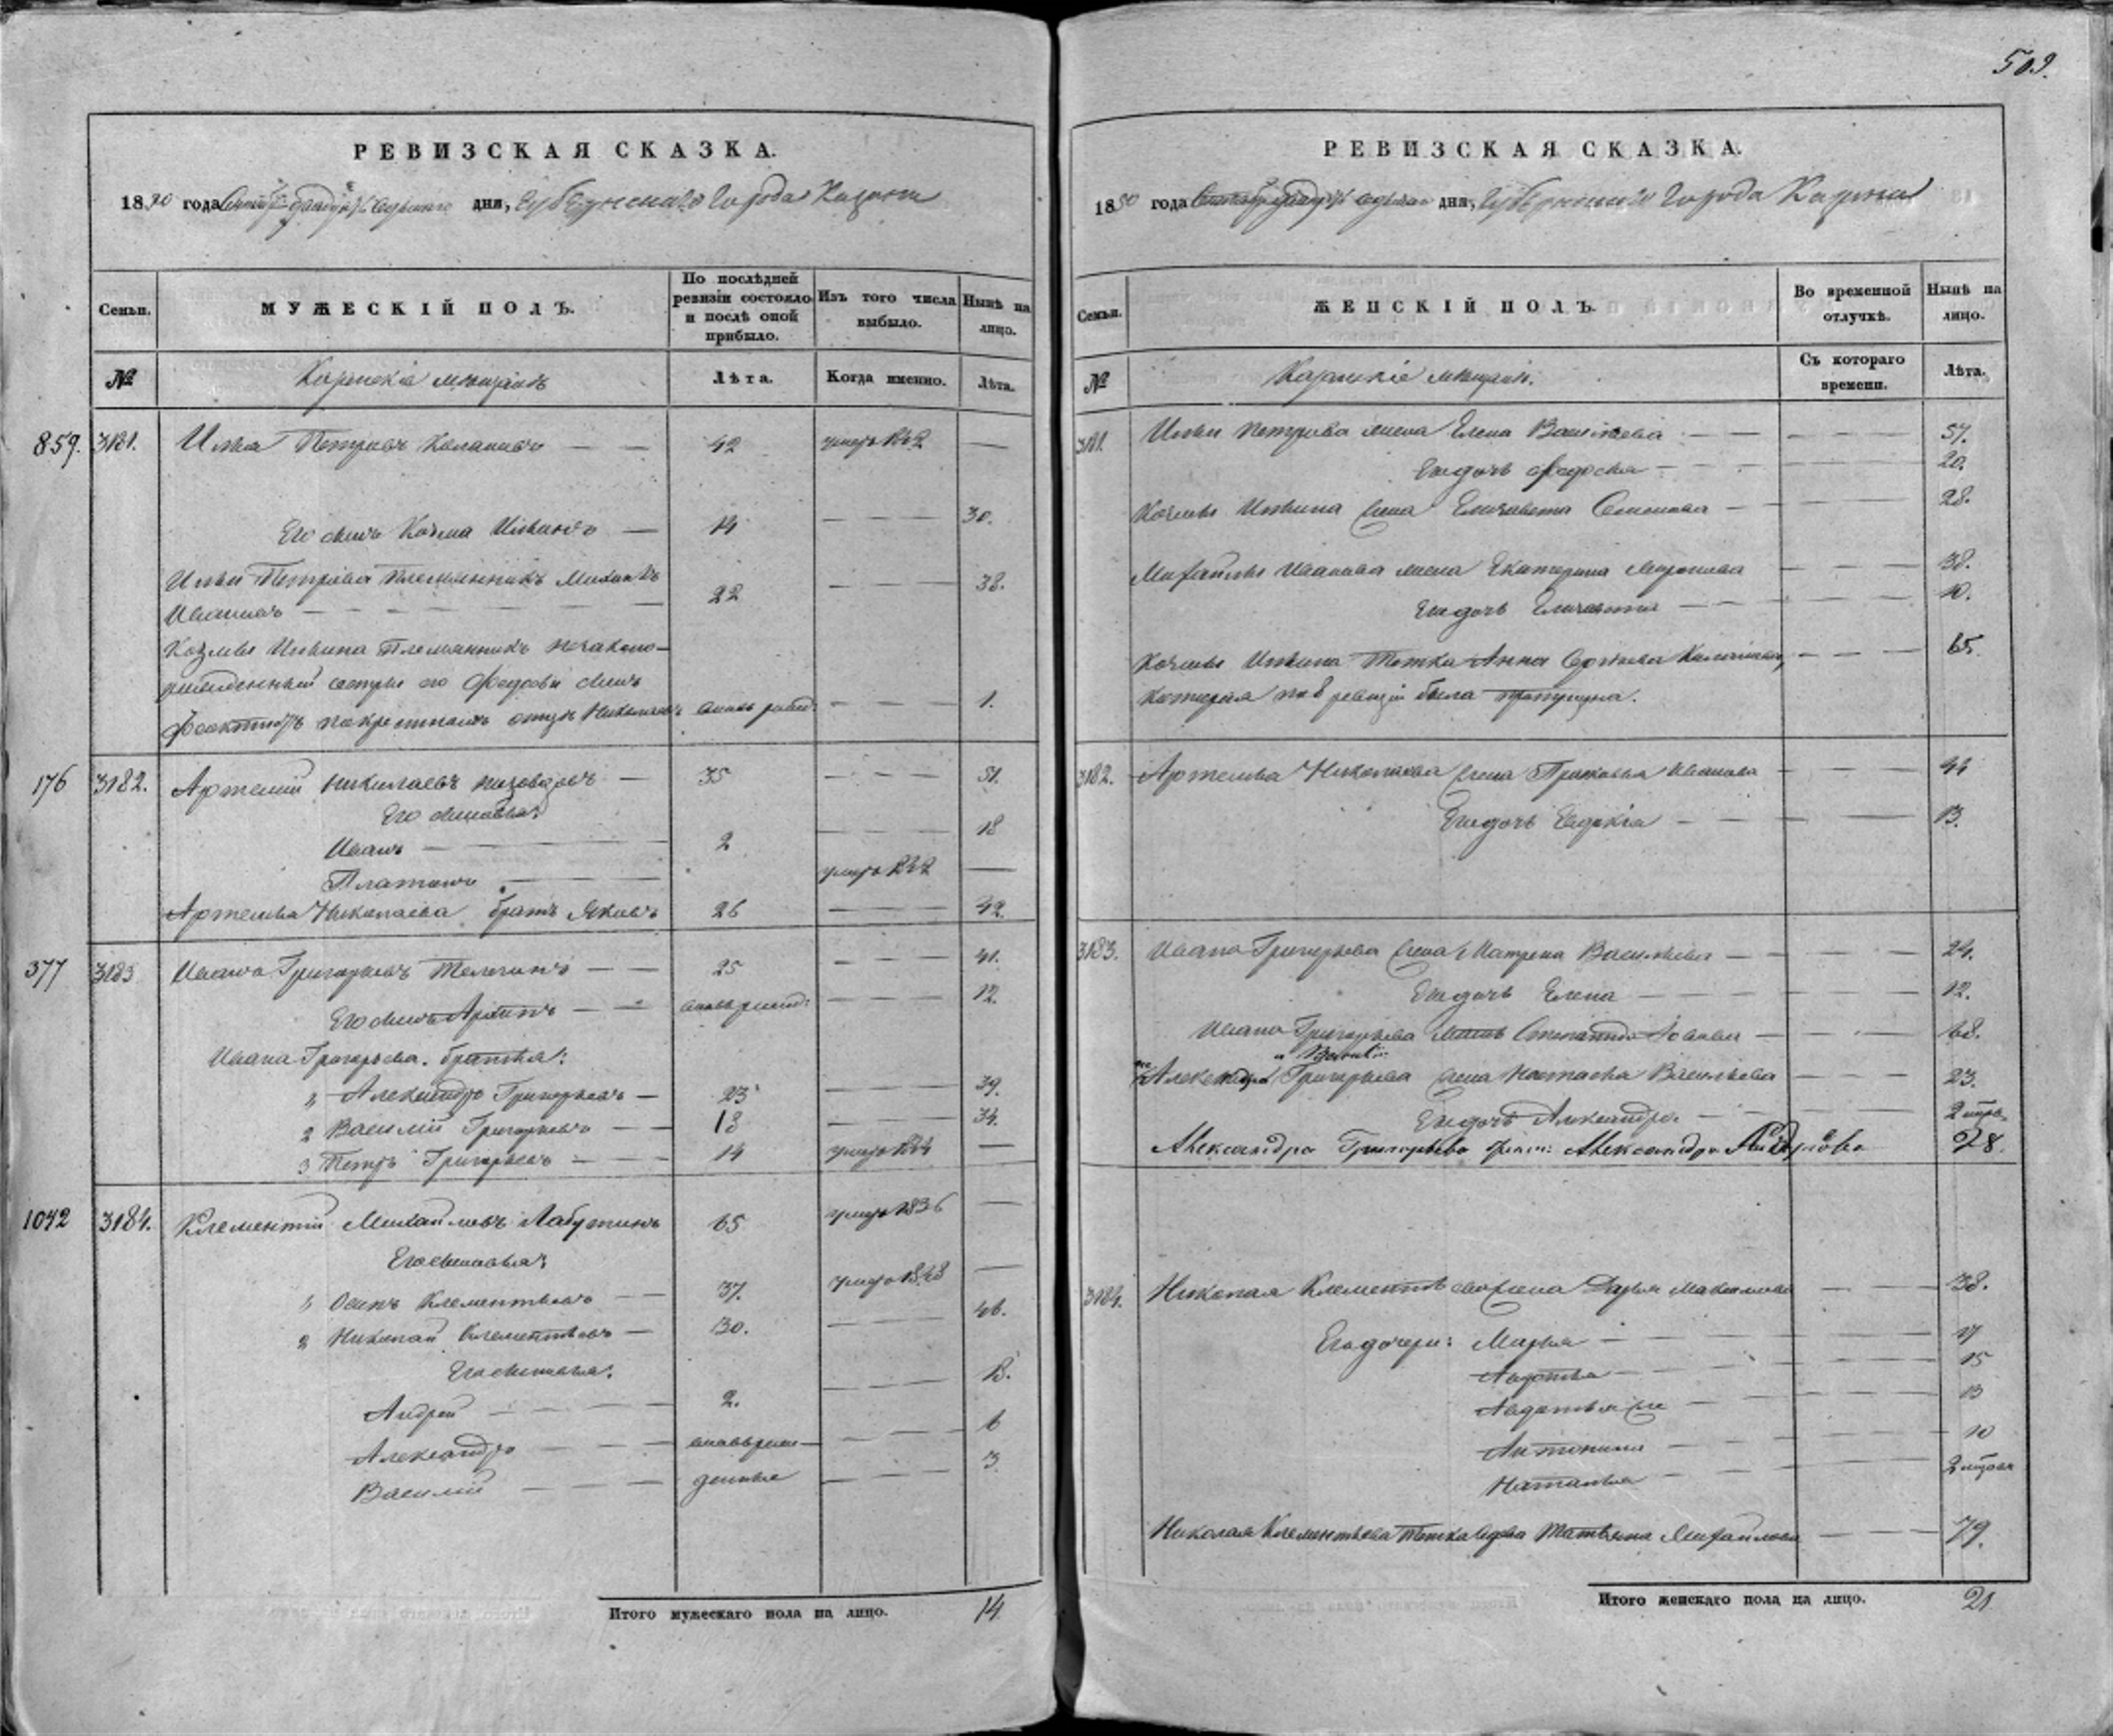 509.
РЕВИЗСКАЯ СКАЗКА.
1850 года дня, Губернскаго Города Казани
Семьи. МУЖЕСКІЙ ПОЛЪ. По послѣдней ревизіи состояло и послѣ оной прибыло. Изъ того числа выбыло. Нынѣ на лицо.
№ Казанскіе мѣщанѣ Лѣта. Когда именно. Лѣта.
859. 3181. Илья Петровъ 42 умеръ 1842 —
Его сынъ Козма Ильинъ — 14 — — — 30.
Ильи Петрова племянникъ Михаилъ
Ивановъ — 22 — — — 38.
Козмы Ильина Племянникъ незаконно-
рожденный сестры его Федосьи сынъ
по крестномъ отцѣ Николаевъ вновь рожд: — — — 1.
176 3182. Артемий Николаевъ — 35 — — — 51.
Его сыновья:
Иванъ — 2 — — — 18
Платонъ — умеръ —
Артемья Николаева братъ Яковъ 26 — — 42.
377 3183 Иванъ Григорьевъ Телегинъ — — 25 — — — 41.
Его сынъ — — вновь рожд: — — — 12.
Ивана Григорьева братья:
1 Александръ Григорьевъ — 23 — — — 39.
2 Василій Григорьевъ — — 18 — — 34.
3 Петръ Григорьевъ — — 14 умеръ —
1042 3184. Клементій Михайловъ Лабутинъ 65 умеръ 1836 —
Его сыновья:
1 Осипъ Клементьевъ — — 37. умеръ 1848 —
2 Николай Клементьевъ — 30. — — — 46.
Его сыновья:
Андрей — — — 2. — — — 18.
Александръ — — — вновь рож- — — — 6
Василій — — — денные — — — 3
Итого мужескаго пола на лицо. 14.
РЕВИЗСКАЯ СКАЗКА.
1850 года дня, Губернскаго Города Казани
Семьи. ЖЕНСКІЙ ПОЛЪ. Во временной отлучкѣ. Нынѣ на лицо.
№ Казанскіе мѣщанѣ. Съ котораго времени. Лѣта.
3181. Ильи Петрова жена Елена Васильева — — — 57.
Ея дочь Федосья — — — 20.
Козмы Ильина жена Елизавета Семенова — — — 28.
Михайлы Иванова жена Екатерина Миронова — — — 38.
Ея дочь Елизавета — — — 10.
Козмы Ильина Тетка Анна — — — 65.
которая по 8 ревизіи была пропущена.
3182. Артемья Николаева жена Прасковья Иванова — — — 44
Ея дочь Евдокія — — — 13.
3183. Ивана Григорьева жена Матрена Васильева — — — 24.
Ея дочь Елена — — — 12.
Ивана Григорьева мать Степанида — — — 68.
Александра Григорьева жена Настасья Васильева — — — 23.
Ея дочь Александра. — — — 2
Александра Григорьева Александра 28.
3184. Николая Клементьева жена Дарья Максимова — — — 38.
Его дочери: Марья — — — 17
Авдотья — — — 15
Авдотья же — — — 13
Антонина — — — 10
Наталья — — — 2
Николая Клементьева тетка вдова Татьяна Михайлова — — — 79.
Итого женскаго пола на лицо. 21